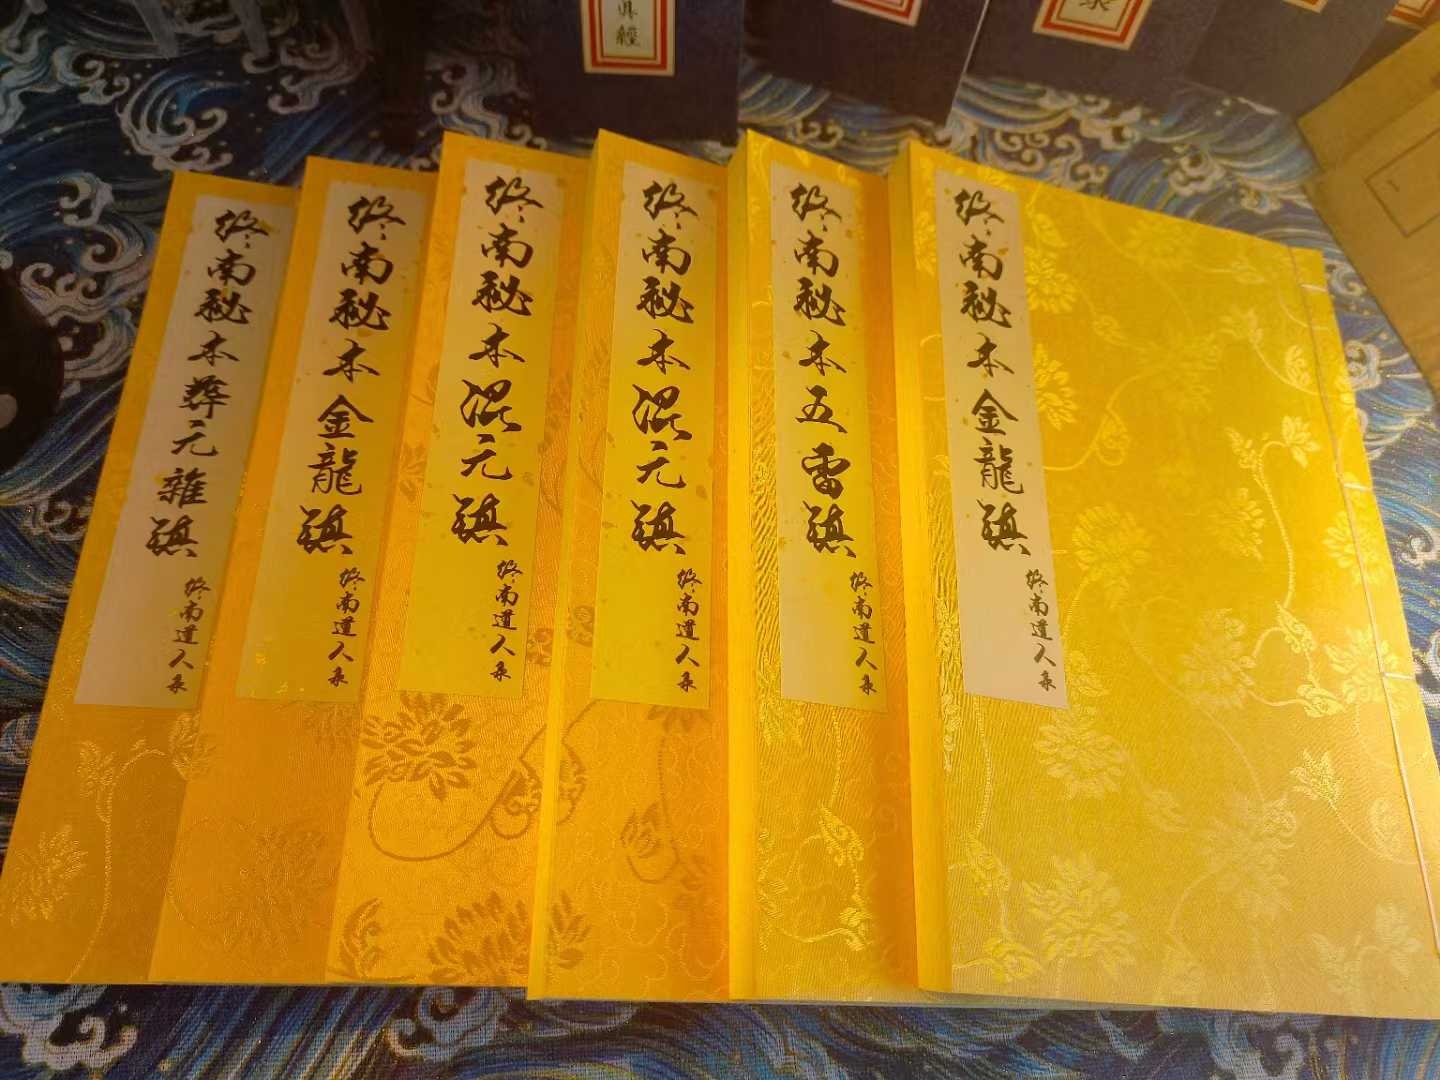 真經
終南秘本金龍鎮
終南道人彔
終南秘本五雷鎮
終南道人彔
終南秘本混元鎮
終南道人彔
終南秘本混元鎮
終南道人彔
終南秘本金龍鎮
終南道人彔
終南秘本元雜鎮
終南道人彔